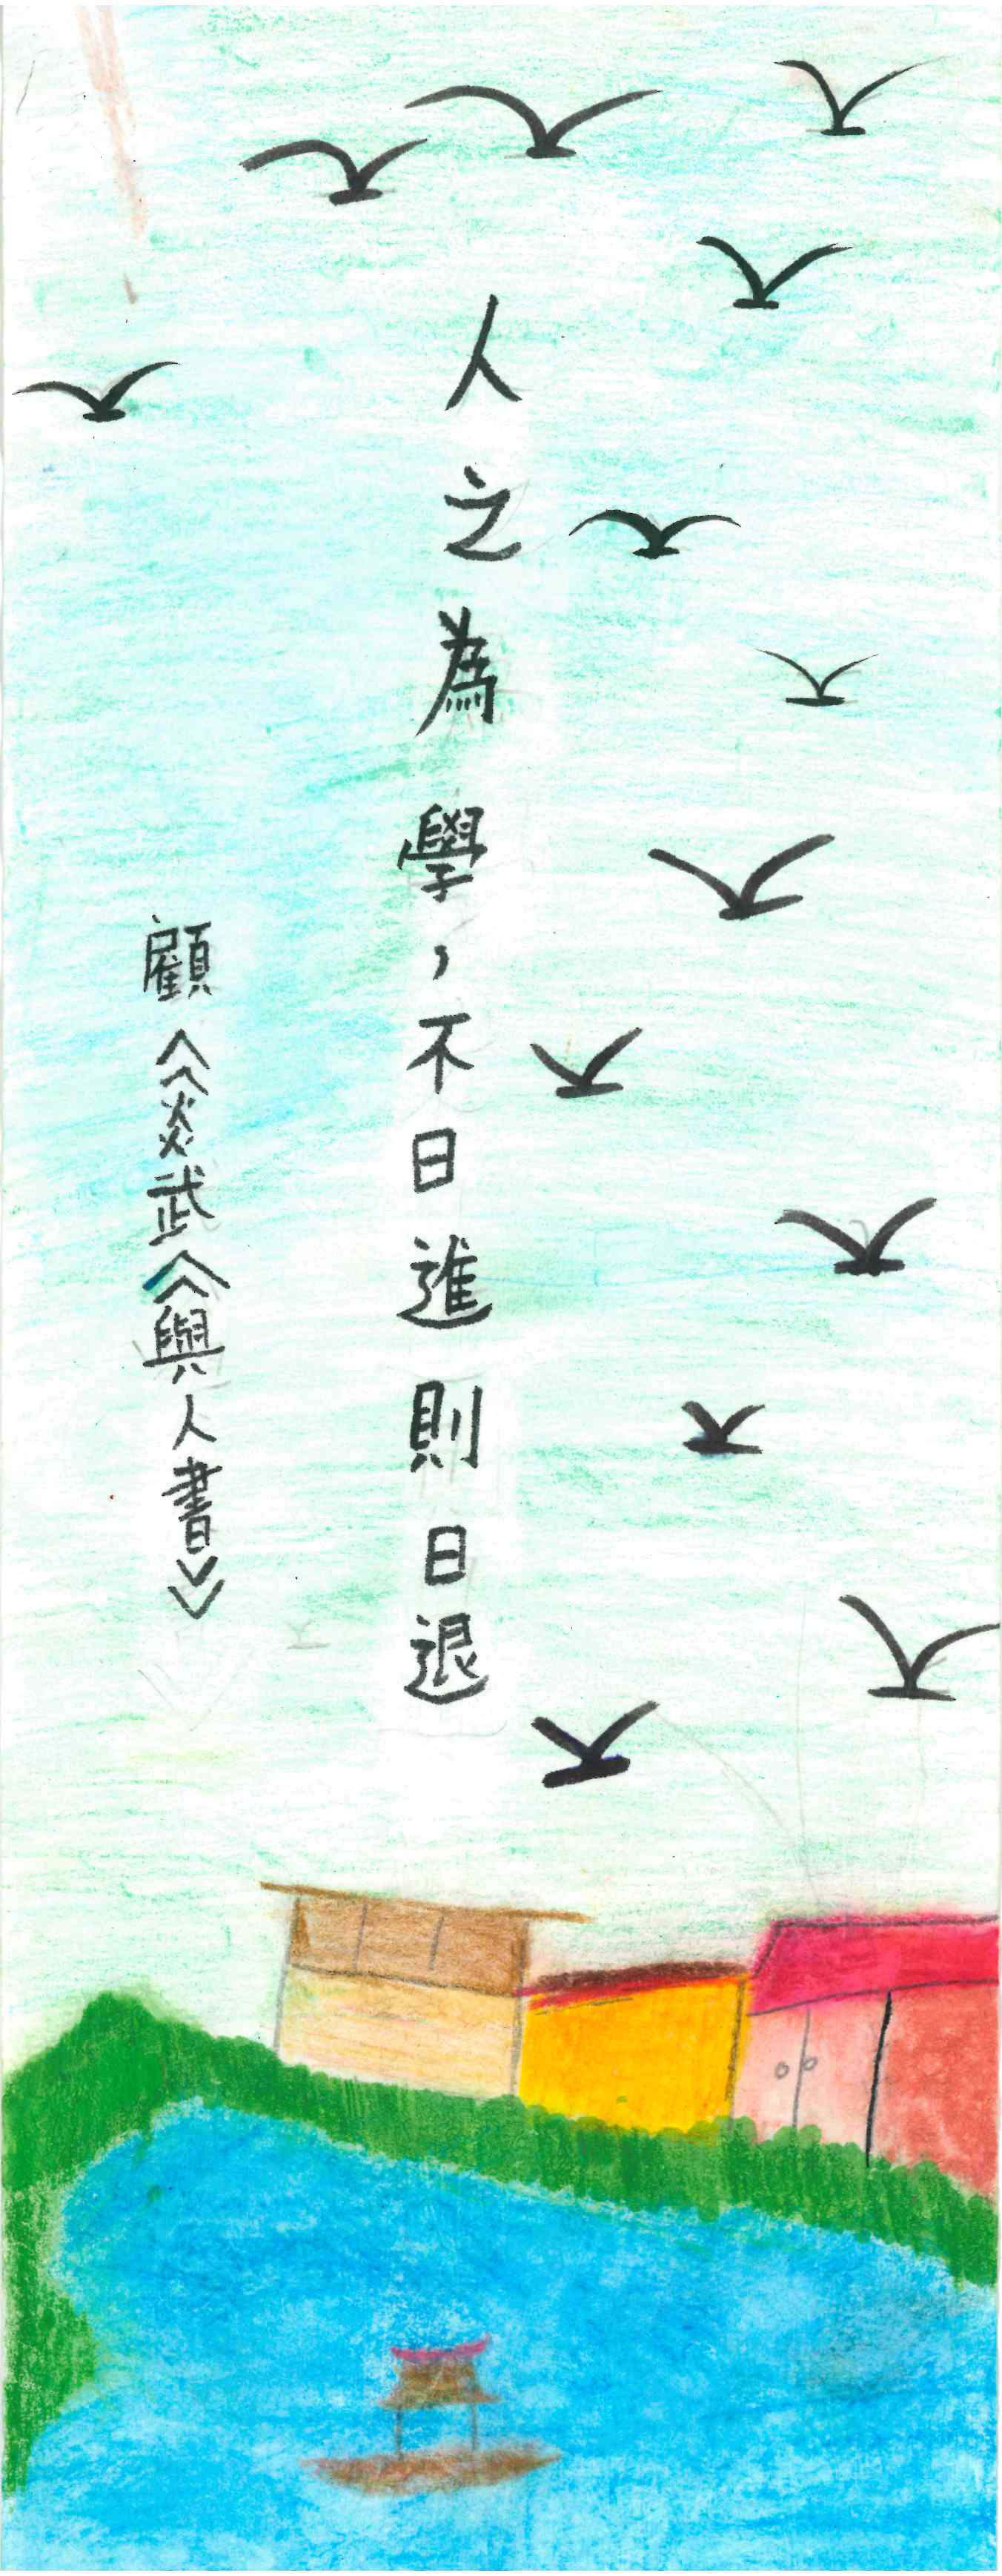 人之為學，不日進則日退
顧《炎武《與人書》